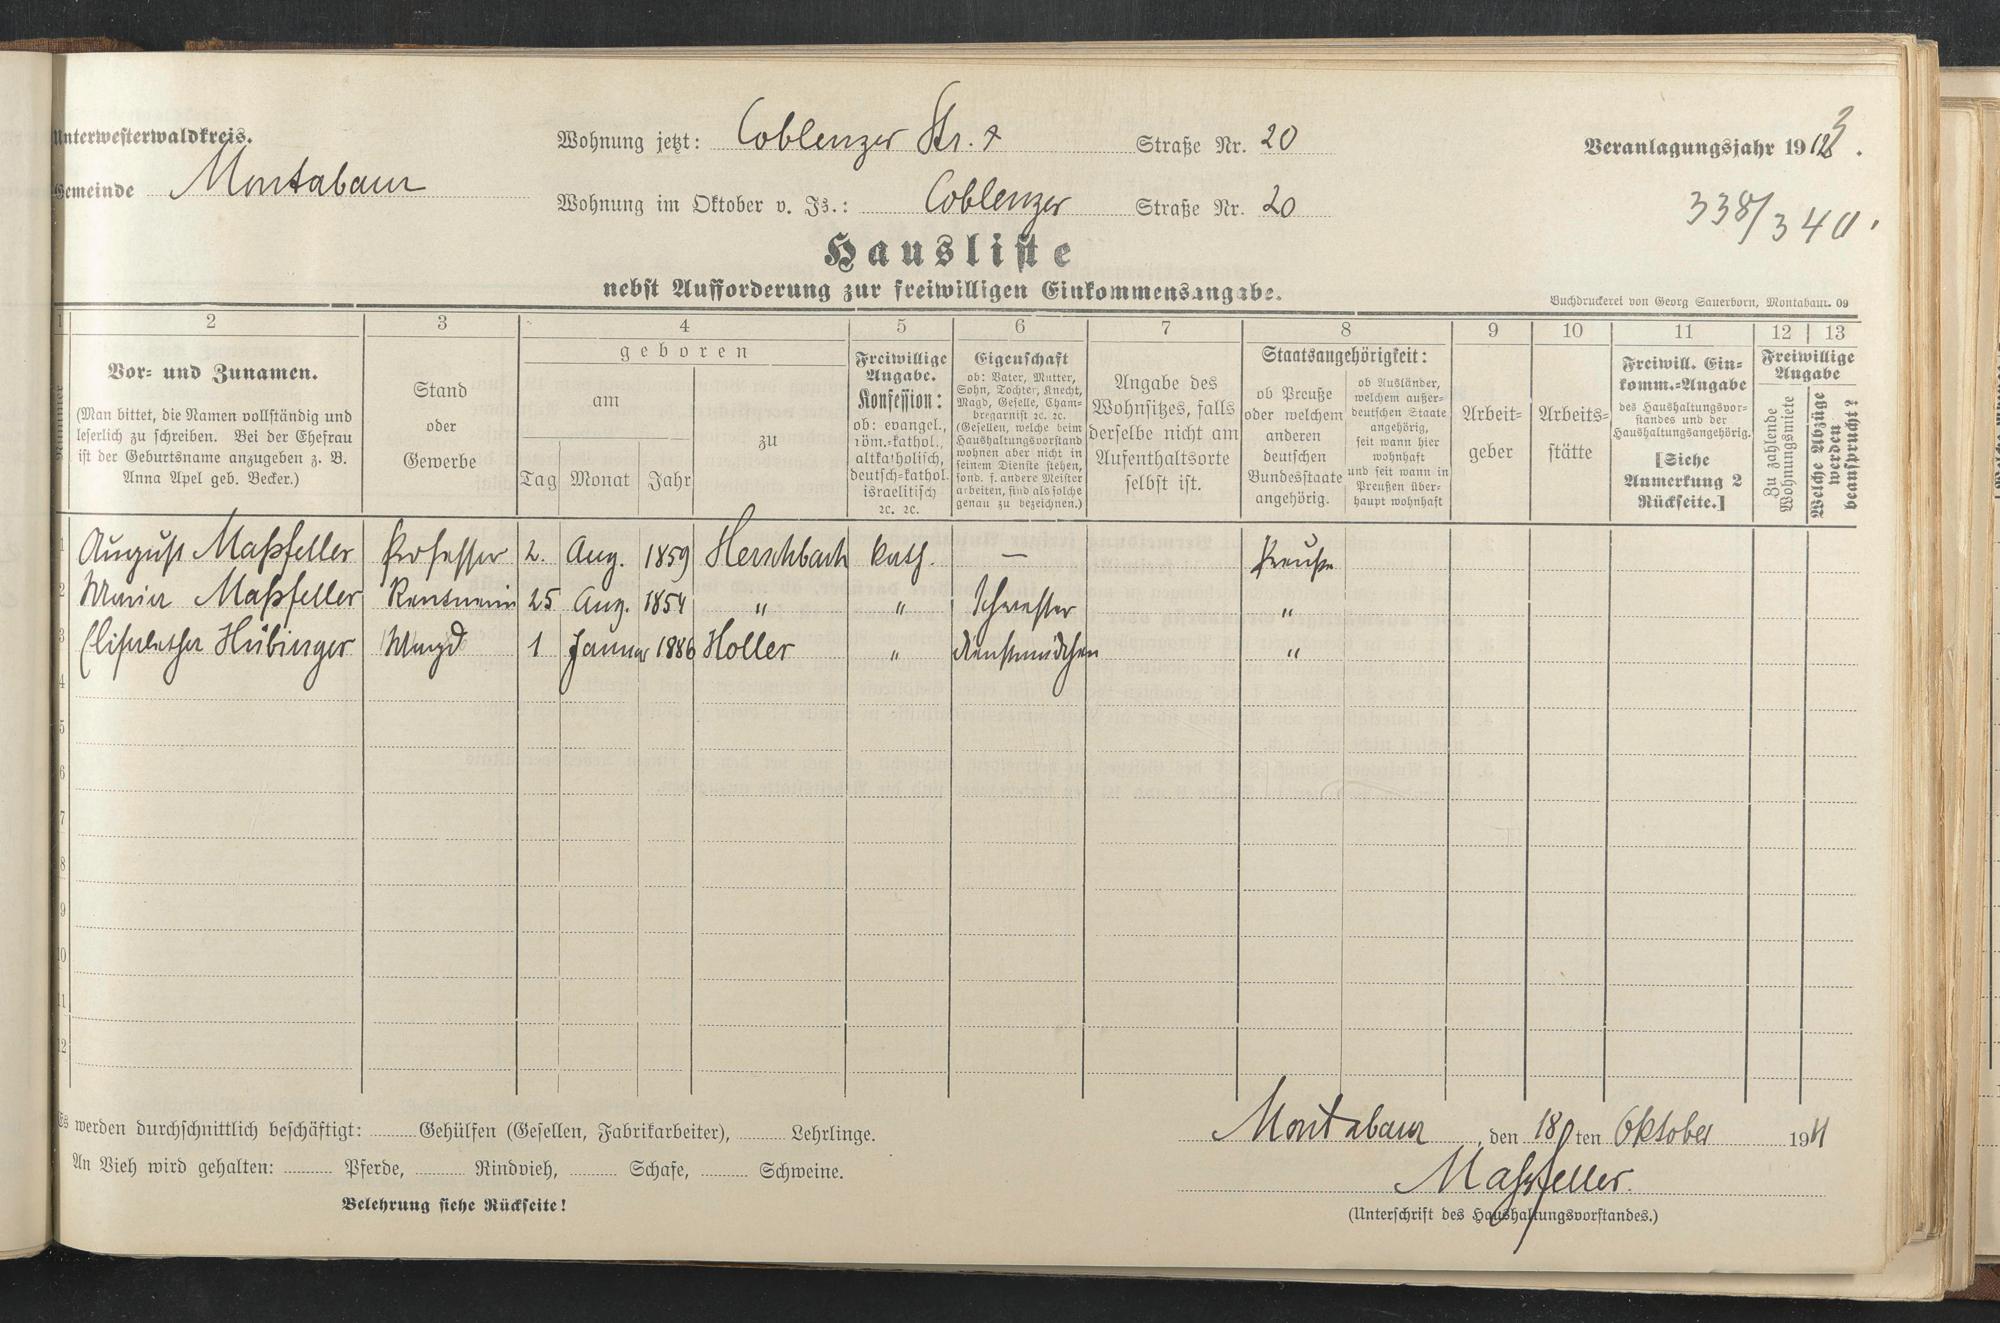 Unterwesterwaldkreis.
Gemeinde Montabaur
Wohnung jetzt: Coblenzer Str. Straße Nr. 20
Wohnung im Oktober v. Js.: Coblenzer Straße Nr. 20
Veranlagungsjahr 19
338/340.
Hausliste
nebst Aufforderung zur freiwilligen Einkommensangabe.
Buchdruckerei von Georg Sauerborn, Montabaur. 09
1 2 3 4 5 6 7 8 9 10 11 12 13
Nummer
Vor- und Zunamen.
(Man bittet, die Namen vollständig und
leserlich zu schreiben. Bei der Ehefrau
ist der Geburtsname anzugeben z. B.
Anna Apel geb. Becker.)
Stand
oder
Gewerbe
geboren
am
Tag Monat Jahr
zu
Freiwillige
Angabe.
Konfession:
ob: evangel.,
röm.-kathol.,
altkatholisch,
deutsch-kathol.
israelitisch
ꝛc. ꝛc.
Eigenschaft
ob: Vater, Mutter,
Sohn, Tochter, Knecht,
Magd, Geselle, Cham-
bregarnist ꝛc. ꝛc.
(Gesellen, welche beim
Haushaltungsvorstand
wohnen aber nicht in
seinem Dienste stehen,
sond. f. andere Meister
arbeiten, sind als solche
genau zu bezeichnen.)
Angabe des
Wohnsitzes, falls
derselbe nicht am
Aufenthaltsorte
selbst ist.
Staatsangehörigkeit:
ob Preuße
oder welchem
anderen
deutschen
Bundesstaate
angehörig.
ob Ausländer,
welchem außer-
deutschen Staate
angehörig,
seit wann hier
wohnhaft
und seit wann in
Preußen über-
haupt wohnhaft
Arbeit-
geber
Arbeits-
stätte
Freiwill. Ein-
komm.-Angabe
des Haushaltungsvor-
standes und der
Haushaltungsangehörig.
[Siehe
Anmerkung 2
Rückseite.]
Freiwillige
Angabe
Zu zahlende
Wohnungsmiete
Welche Abzüge
werden
beansprucht?
1 August Maßfeller Professor 2. Aug. 1859 Herschbach kath. — Preuße
2 Maria Maßfeller Rentnerin 25 Aug. 1854 " " Schwester "
3 Elisabetha Hübinger Magd 1 Januar 1886 Holler " Dienstmädchen "
4
5
6
7
8
9
10
11
12
Es werden durchschnittlich beschäftigt: Gehülfen (Gesellen, Fabrikarbeiter), Lehrlinge.
An Vieh wird gehalten: Pferde, Rindvieh, Schafe, Schweine.
Belehrung siehe Rückseite!
Montabaur, den 18 ten Oktober 1911
Maßfeller.
(Unterschrift des Haushaltungsvorstandes.)